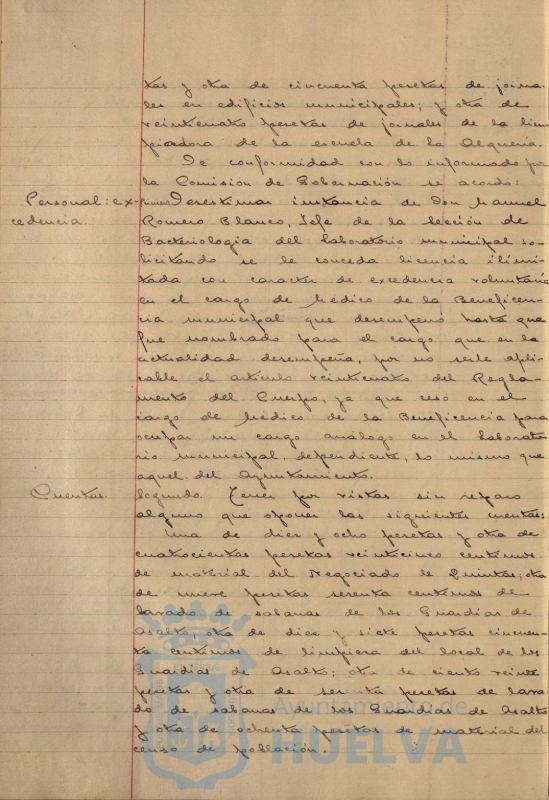 tas y otra de cincuenta pesetas de jorna-
les en edificios municipales; y otra de
veinticuatro pesetas de jornales de la lim-
piadora de la escuela de la Alquería.
De conformidad con lo informado por
la Comisión de Gobernación se acordó:
Personal: ex-
cedencia.
Primero Desestimar instancia de Don Manuel
Romero Blanco, Jefe de la Sección de
Bacteriología del Laboratorio municipal so-
licitando se le conceda licencia ilimi-
tada con caracter de excedencia voluntaria
en el cargo de Médico de la Beneficen-
cia municipal que desempeñó hasta que
fué nombrado para el cargo que en la
actualidad desempeña, por no serle apli-
cable el artículo veinticuatro del Regla-
mento del Cuerpo, ya que cesó en el
cargo de Médico de la Beneficencia para
ocupar un cargo análogo en el Laborato-
rio municipal, dependiente, lo mismo que
aquel del Ayuntamiento.
Cuentas.
Segundo. Tener por vistas sin reparo
alguno que oponer las siguientes cuentas:
Una de diez y ocho pesetas y otra de
cuatrocientas pesetas veinticinco centimos
de material del Negociado de Quintas; otra
de nueve pesetas sesenta centimos de
lavado de sabanas de los Guardias de
Asalto, otra de diez y siete pesetas cincuen-
ta centimos de limpieza del local de los
Guardias de Asalto; otra de ciento veinte
pesetas y otra de sesenta pesetas de lava-
do de sabanas de los Guardias de Asalto
y otra de ochenta pesetas de material del
censo de población.
Ayuntamiento de
HUELVA